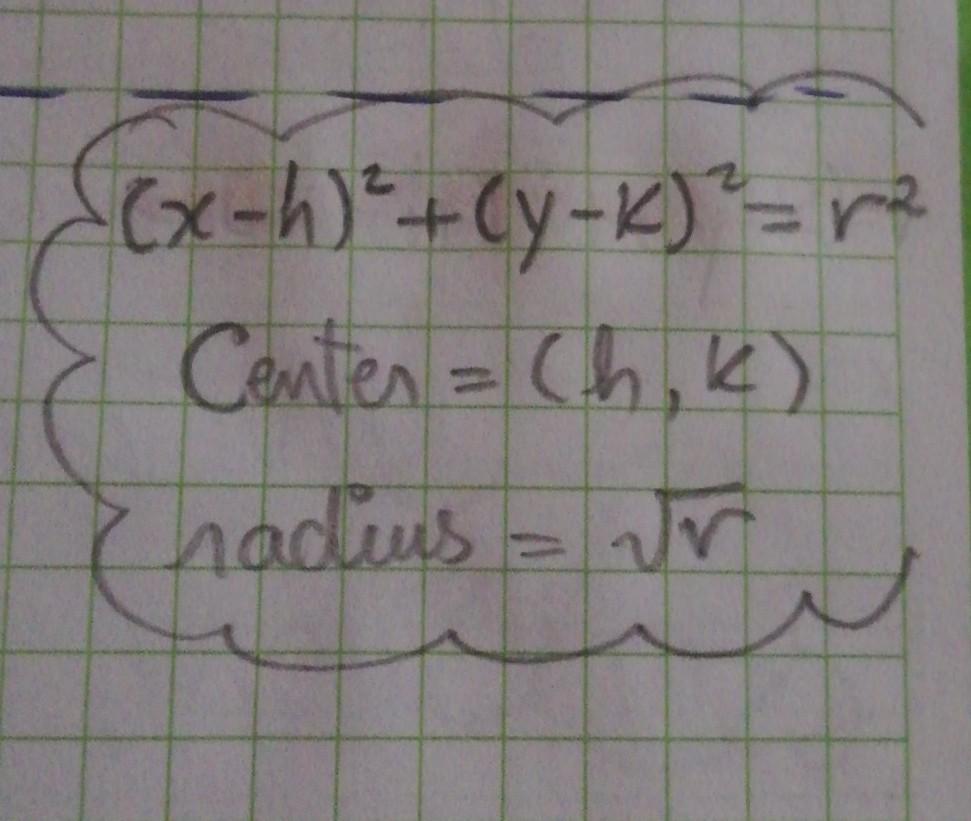 (x-h)²+(y-k)²=r²
Center = (h, k)
radius = √r